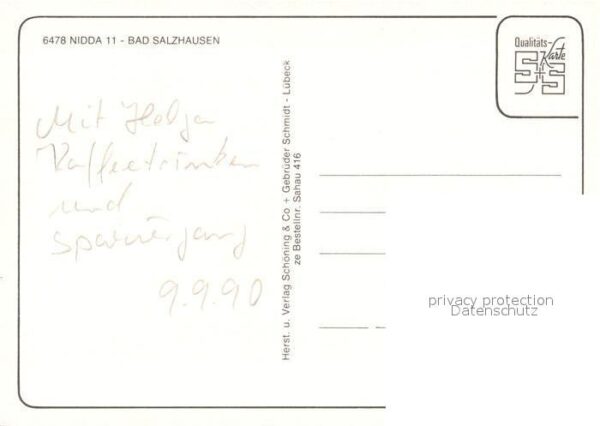 6478 NIDDA 11 - BAD SALZHAUSEN
Mit Helga
Kaffeetrinken
und
spaziergang
9.9.90
Herst. u. Verlag Schöning & Co + Gebrüder Schmidt - Lübeck
ze Bestellnr. Sahau 416
Qualitäts-
Karte
S+S
privacy protection
Datenschutz